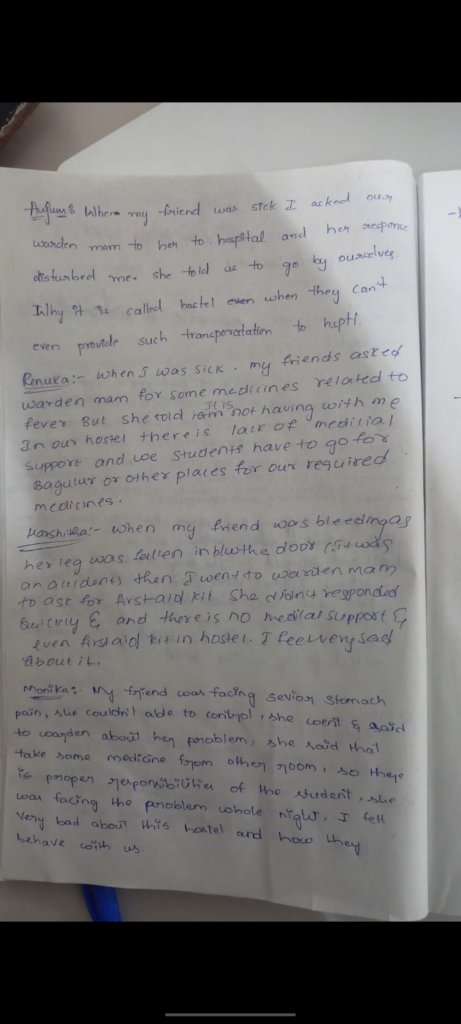 Anjum: When my friend was sick I asked our
warden mam to her to hospital and her response
disturbed me. she told us to go by ourselves
Why it is called hostel even when they can't
even provide such transportation to hsptl.
Renuka:- when I was sick. my friends asked
warden mam for some medicines related to
fever But she told it is not having with me
In our hostel there is lack of medicial
support and we students have to go for
Bagulur or other places for our required
medicines.
Harshitha:- when my friend was bleeding as
her leg was fallen in the door (It was
an accident) then I went to warden mam
to ask for first-aid kit. She didn't responded
Quickly & and there is no medical support &
even first aid kit in hostel. I feel very sad
about it.
Monika:. My friend was facing sevior stomach
pain, she couldn't able to control, she went & said
to warden about her problem, she said that
take some medicine from other room, so there
is proper responsibilities of the student, she
was facing the problem whole night, I fell
very bad about this hostel and how they
behave with us